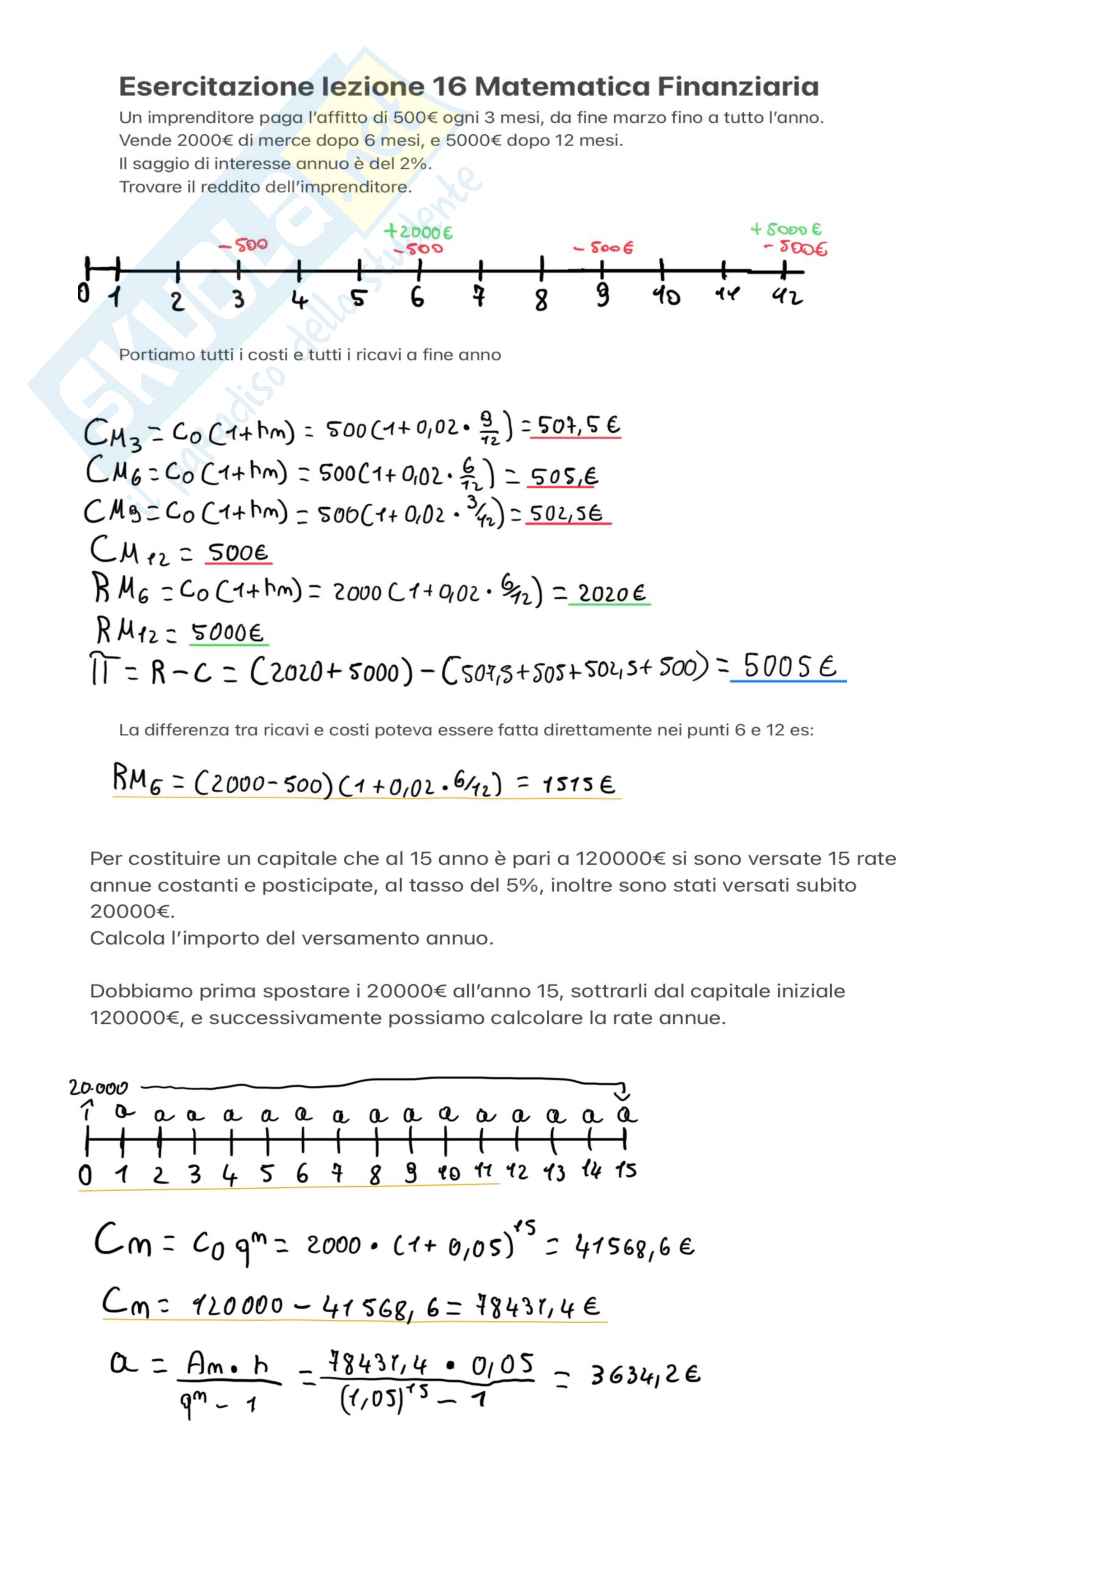 Esercitazione lezione 16 Matematica Finanziaria
Un imprenditore paga l'affitto di 500€ ogni 3 mesi, da fine marzo fino a tutto l'anno.
Vende 2000€ di merce dopo 6 mesi, e 5000€ dopo 12 mesi.
Il saggio di interesse annuo è del 2%.
Trovare il reddito dell'imprenditore.
+2000€ +5000€
-500 -500 -500€ -500€
0 1 2 3 4 5 6 7 8 9 10 11 12
SKUOLA.net
il paradiso dello studente
Portiamo tutti i costi e tutti i ricavi a fine anno
CM3 = C0(1+hm) = 500(1+0,02·9/12) = 507,5€
CM6 = C0(1+hm) = 500(1+0,02·6/12) = 505,€
CM9 = C0(1+hm) = 500(1+0,02·3/12) = 502,5€
CM12 = 500€
RM6 = C0(1+hm) = 2000(1+0,02·6/12) = 2020€
RM12 = 5000€
π = R-C = (2020+5000)-(507,5+505+502,5+500) = 5005€
La differenza tra ricavi e costi poteva essere fatta direttamente nei punti 6 e 12 es:
RM6 = (2000-500)(1+0,02·6/12) = 1515€
Per costituire un capitale che al 15 anno è pari a 120000€ si sono versate 15 rate
annue costanti e posticipate, al tasso del 5%, inoltre sono stati versati subito
20000€.
Calcola l'importo del versamento annuo.
Dobbiamo prima spostare i 20000€ all'anno 15, sottrarli dal capitale iniziale
120000€, e successivamente possiamo calcolare la rate annue.
20.000
a a a a a a a a a a a a a a a
0 1 2 3 4 5 6 7 8 9 10 11 12 13 14 15
Cm = C0 q^m = 2000·(1+0,05)^15 = 41568,6€
Cm = 120000 - 41568,6 = 78431,4€
a = Am·h / q^m - 1 = 78431,4·0,05 / (1,05)^15 - 1 = 3634,2€